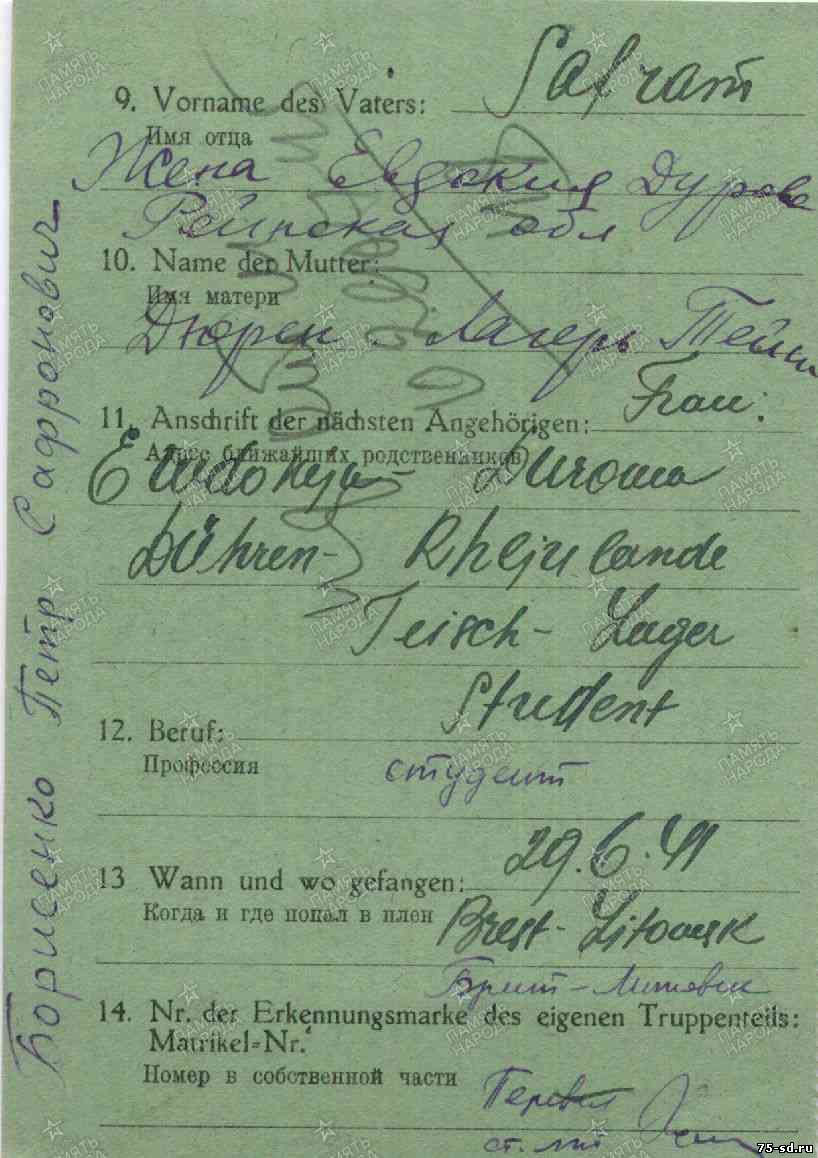 9. Vorname des Vaters: Safram
Имя отца
Жена Евдокия Дурова
Рейнская обл
10. Name der Mutter:
Имя матери
Дюрен. Лагерь
11. Anschrift der nächsten Angehörigen: Frau:
Адрес ближайших родственников)
Ewdokija Durowa
Dühren- Rhejnlande
Teisch- Lager
12. Beruf: Student
Профессия студент
13 Wann und wo gefangen: 29.6.41
Когда и где попал в плен Brest-Litowsk
Брест-Литовск
14. Nr. der Erkennungsmarke des eigenen Truppenteils:
Matrikel=Nr.
Номер в собственной части
Перевел
ст.
Борисенко Петр Сафронович
ПАМЯТЬ НАРОДА
75-sd.ru